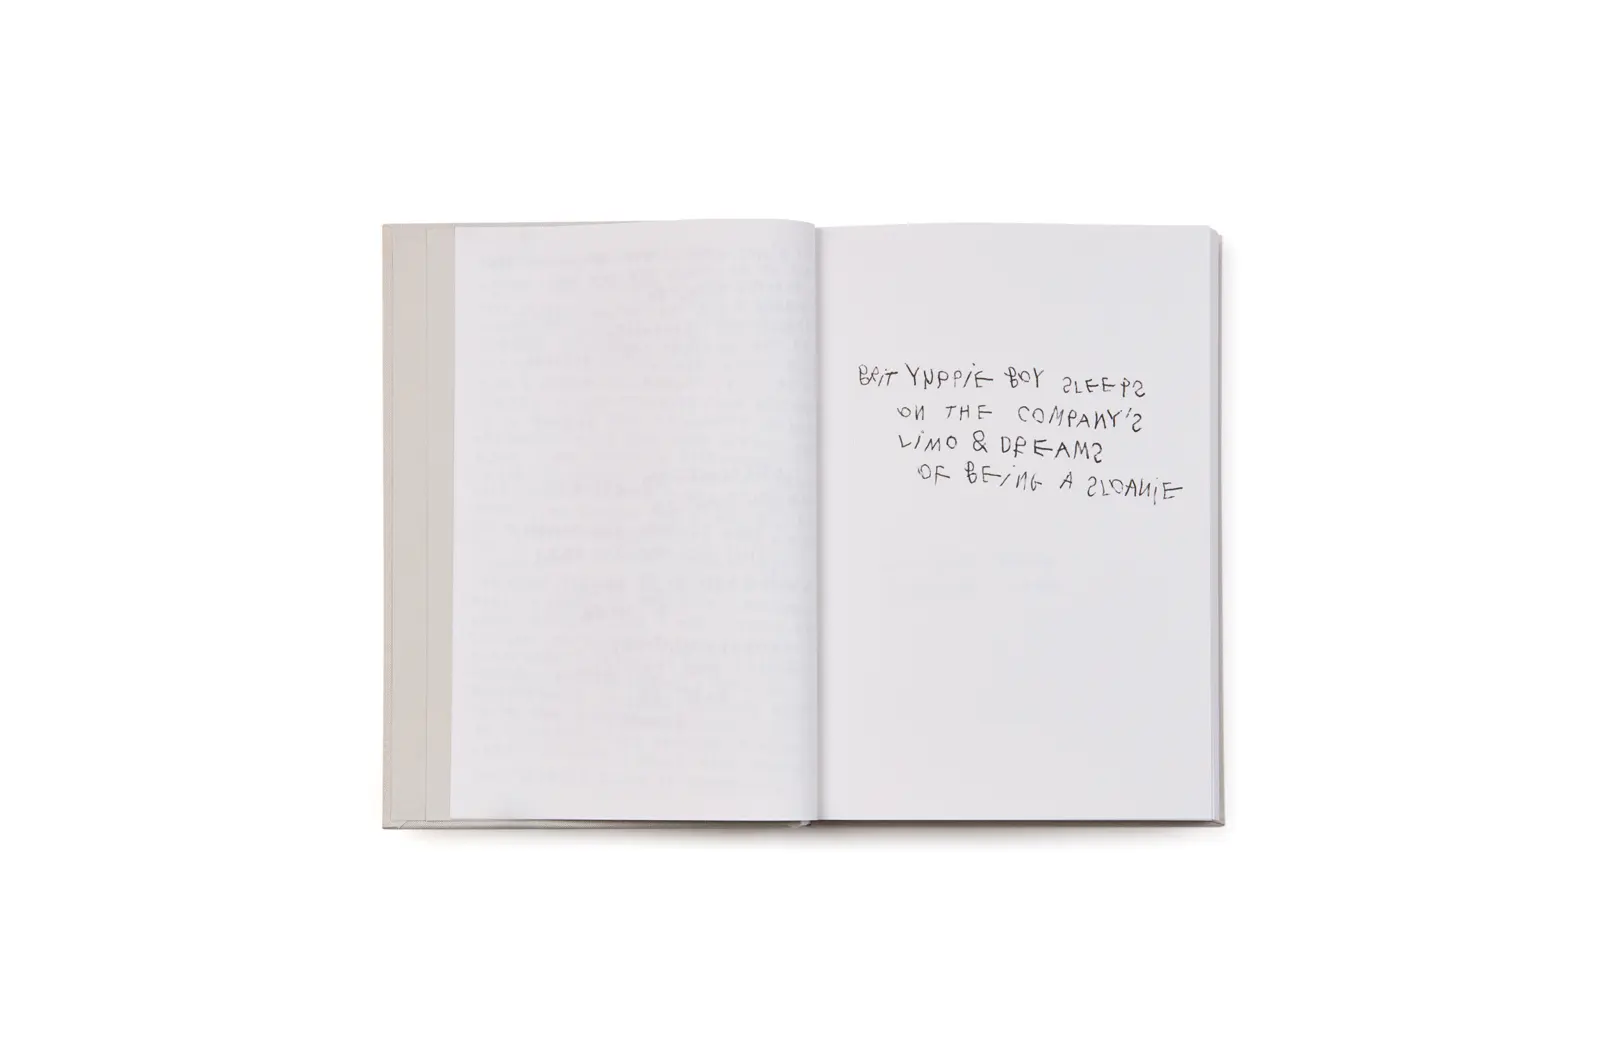 BRIT YUPPIE BOY SLEEPS
ON THE COMPANY'S
LIMO & DREAMS
OF BEING A SLOANIE